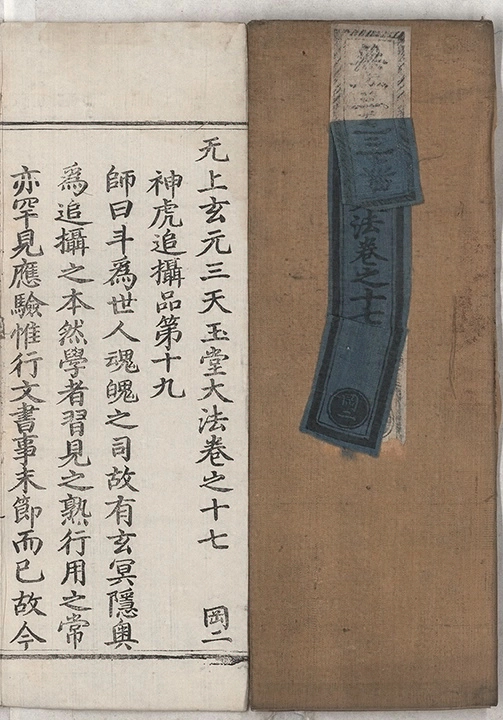 法卷之十七
岡二
无上玄元三天玉堂大法卷之十七 岡二
神虎追攝品第十九
師曰斗爲世人魂魄之司故有玄冥隱奧
爲追攝之本然學者習見之熟行用之常
亦罕見應驗惟行文書事末節而已故今